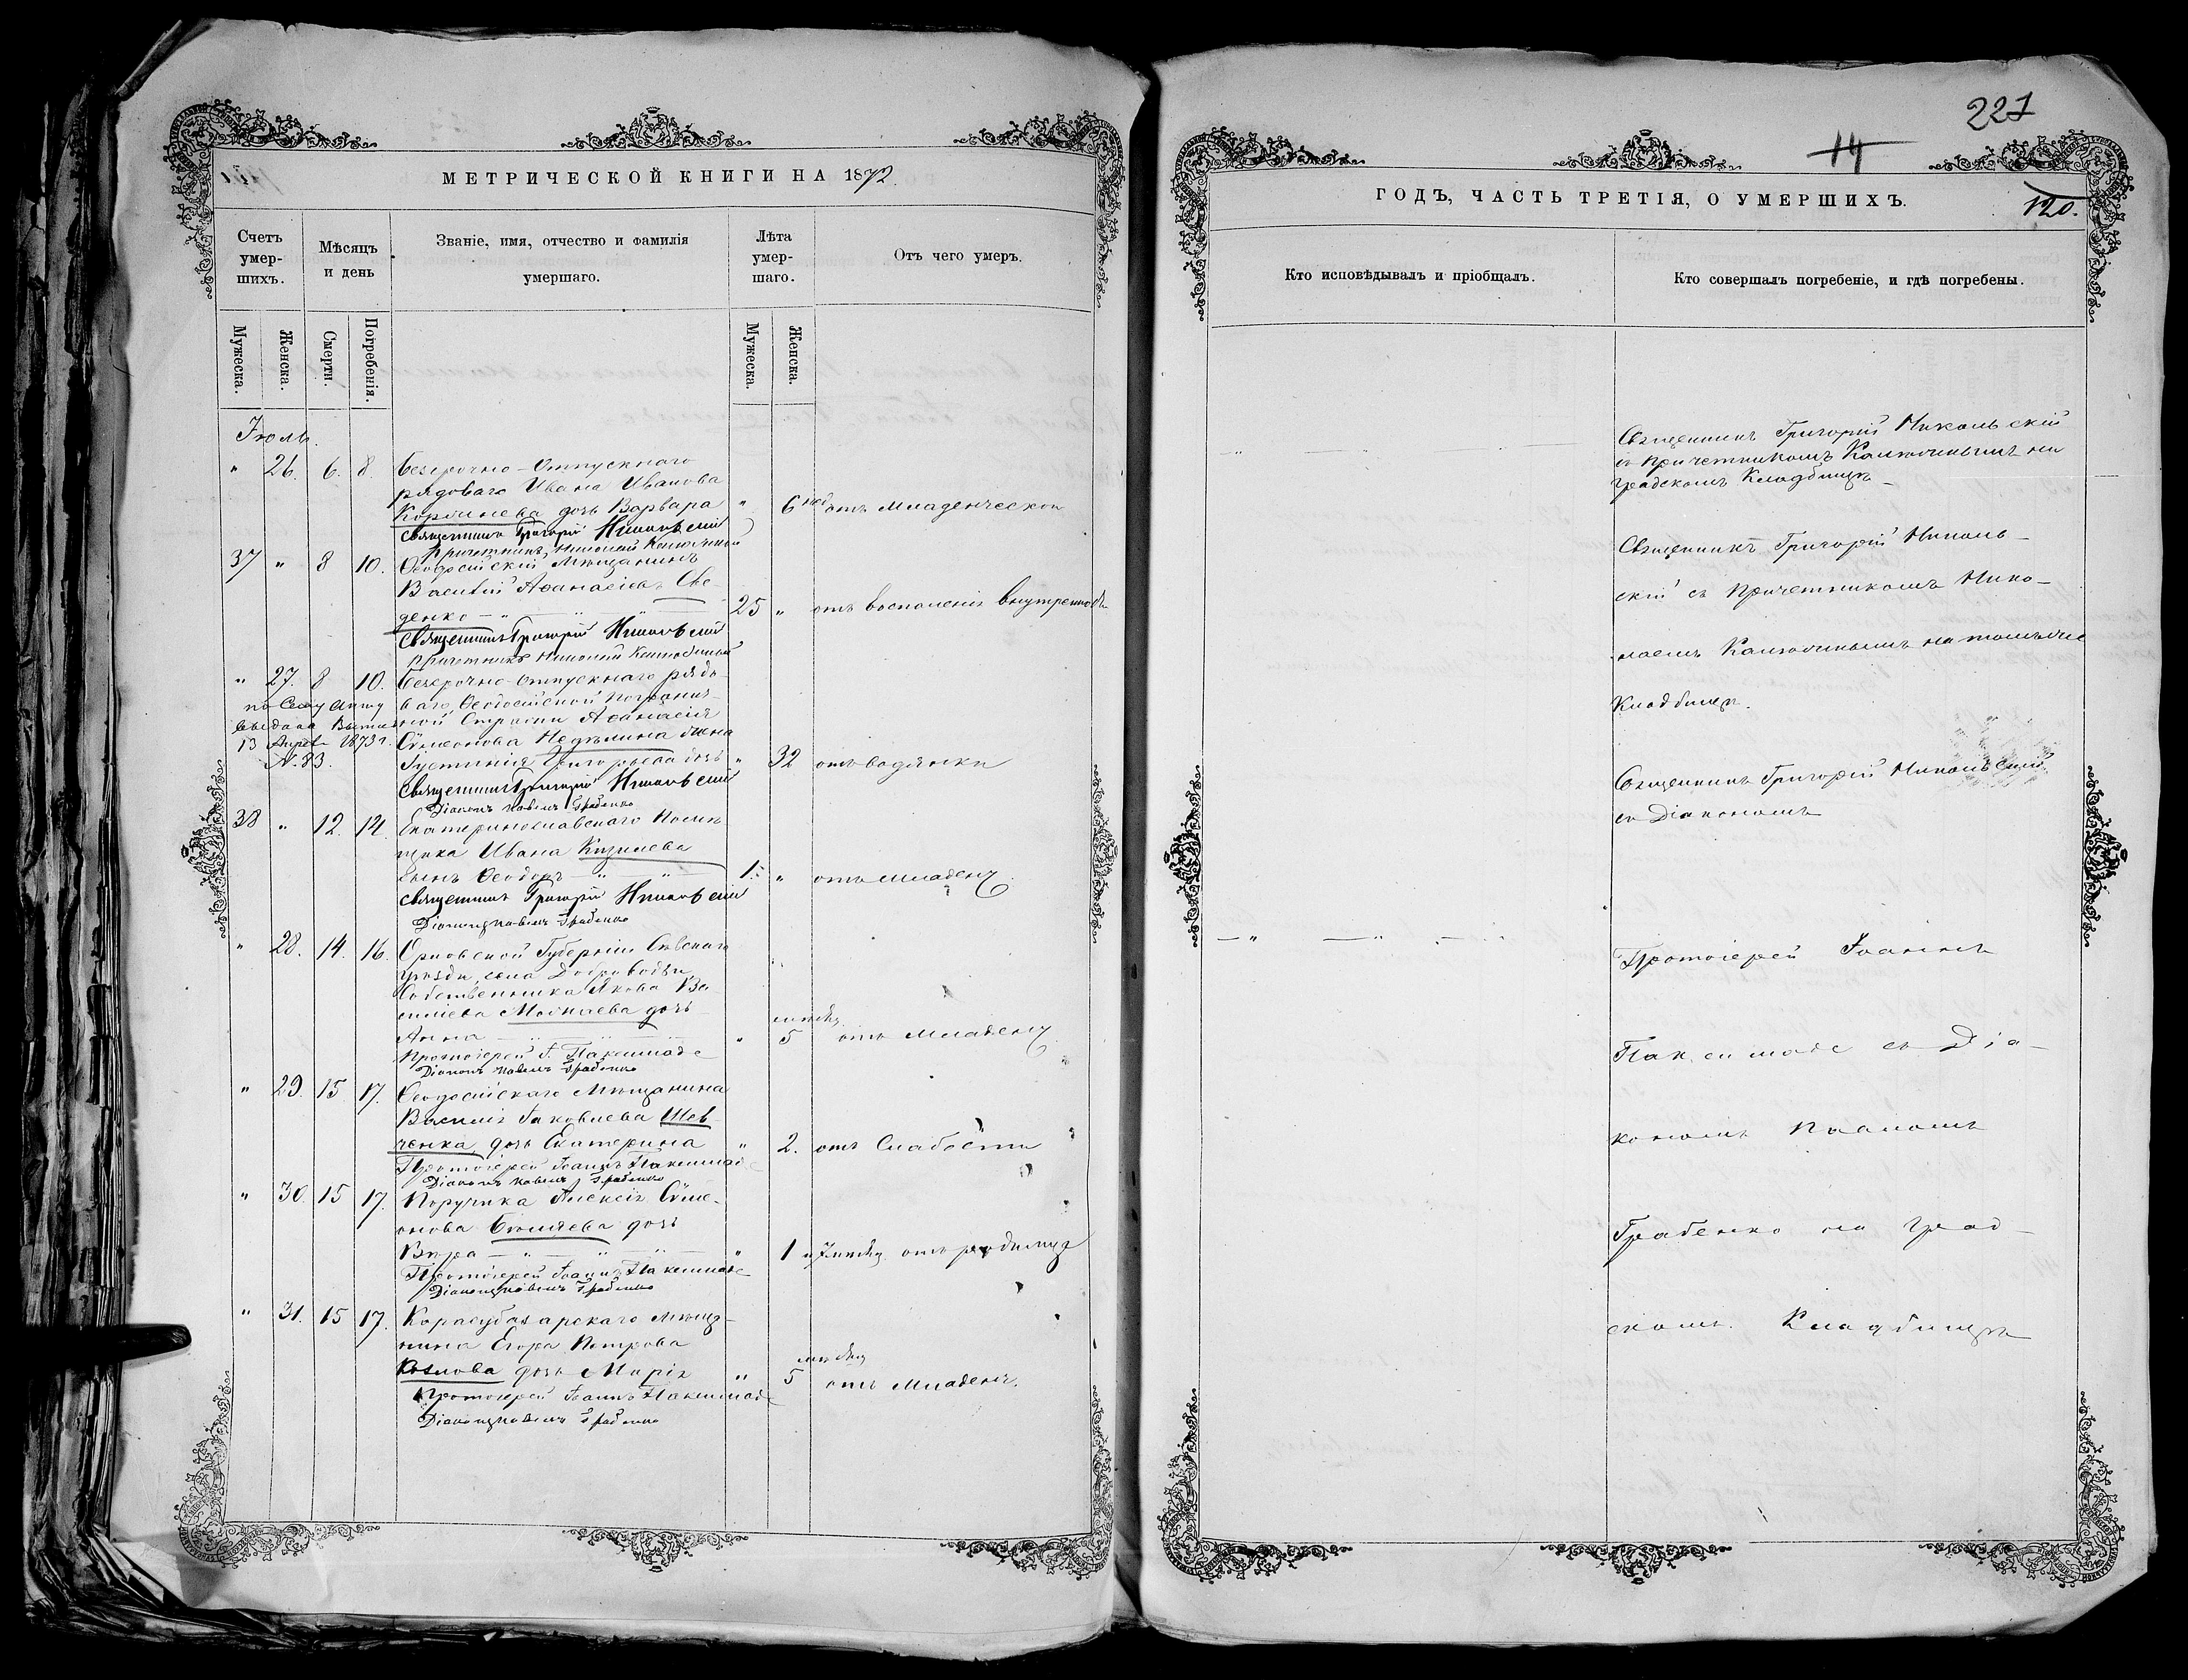 МЕТРИЧЕСКОЙ КНИГИ НА 1872.
Счетъ умер-шихъ.
Мѣсяцъ и день
Званіе, имя, отчество и фамилія умершаго.
Лѣта умер-шаго.
Отъ чего умеръ.
Мужеска.
Женска.
Смерти.
Погребенія.
Мужеска.
Женска.
Іюль.
" 26. 6. 8. Безсрочно-Отпускнаго
рядоваго Ивана Иванова
дочь Варвара " 6 нед отъ Младенческой
Священникъ Григорій Никольскій
Причетникъ Николай
37 " 8 10. Ѳеодосійскій Мѣщанинъ
Василій Аѳанасіевъ Све-
денко — " — 25 " отъ воспаленія внутренно
Священникъ Григорій Никольскій
Причетникъ Николай
" 27. 8 10. Безсрочно-Отпускнаго рядо-
ваго Ѳеодосійской Погранич-
ной Стражи Аѳанасія
Сѵмеонова Недѣлина жена
Іустинія Григорьева дочь " 32 отъ водянки
13 Апрѣл 1873 г.
№ 83.
Священникъ Григорій Никольскій
Діаконъ Павелъ Грабенко
38 " 12. 14. Екатеринославскаго Помѣ-
щика Ивана
сынъ Ѳеодоръ — " — 1. " отъ Младенч.
Священникъ Григорій Никольскій
Діаконъ Павелъ Грабенко
" 28. 14. 16. Орловской Губерніи Сѣвскаго
Уѣзда, села Доброводья
Собственника Якова Ва-
сильева дочь
Анна " 5 мѣсяц отъ Младенч
Протоіерей І. Паксимаде
Діаконъ Павелъ Грабенко
" 29. 15 17. Ѳеодосійскаго Мѣщанина
Василія Іаковлева Шев-
ченка дочь Екатерина " 2. отъ Слабости
Протоіерей Іоаннъ Паксимаде
Діаконъ Павелъ Грабенко
" 30. 15 17. Поручика Алексія Сѵме-
онова дочь
Вѣра — " — " 1 и 7 мѣсяц отъ родимца
Протоіерей Іоаннъ Паксимаде
Діаконъ Павелъ Грабенко
" 31. 15 17. Карасубазарскаго Мѣща-
нина Егора Петрова
Козлова дочь Марія " 5 мѣсяц отъ Младенч.
Протоіерей Іоаннъ Паксимаде
Діаконъ Павелъ Грабенко
227
14
ГОДЪ, ЧАСТЬ ТРЕТІЯ, О УМЕРШИХЪ.
120.
Кто исповѣдывалъ и пріобщалъ.
Кто совершалъ погребеніе, и гдѣ погребены.
Священникъ Григорій Никольскій
съ Причетникомъ на
градскомъ Кладбищѣ —
Священникъ Григорій Николь-
скій съ Причетникомъ Нико-
лаемъ на томъ же
Кладбищѣ.
Священникъ Григорій Никольскій
съ Діакономъ
Протоіерей Іоаннъ
Паксимаде съ Діа-
кономъ Павломъ
Грабенко на град-
скомъ Кладбищѣ